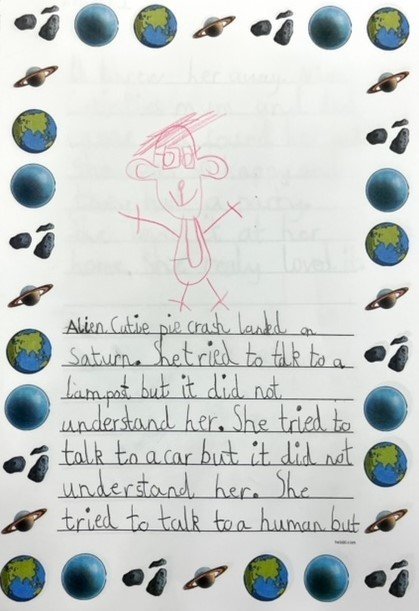 Alien Cutie pie crash landed on
Saturn. She tried to talk to a
lampost but it did not
understand her. She tried to
talk to a car but it did not
understand her. She
tried to talk to a human but